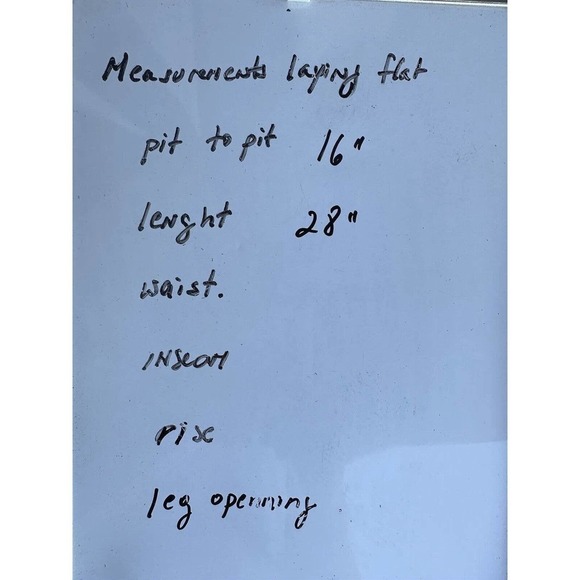 Measurements laying flat
pit to pit 16"
lenght 28"
waist.
INseam
rise
leg openning